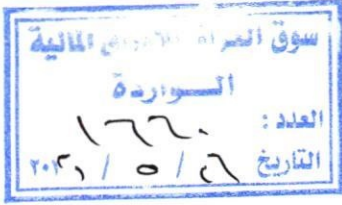 سوق العراق للاوراق المالية
الـــواردة
العدد : ١٦٦٠
التاريخ ٢٦ / ٥ / ٢٠٢١